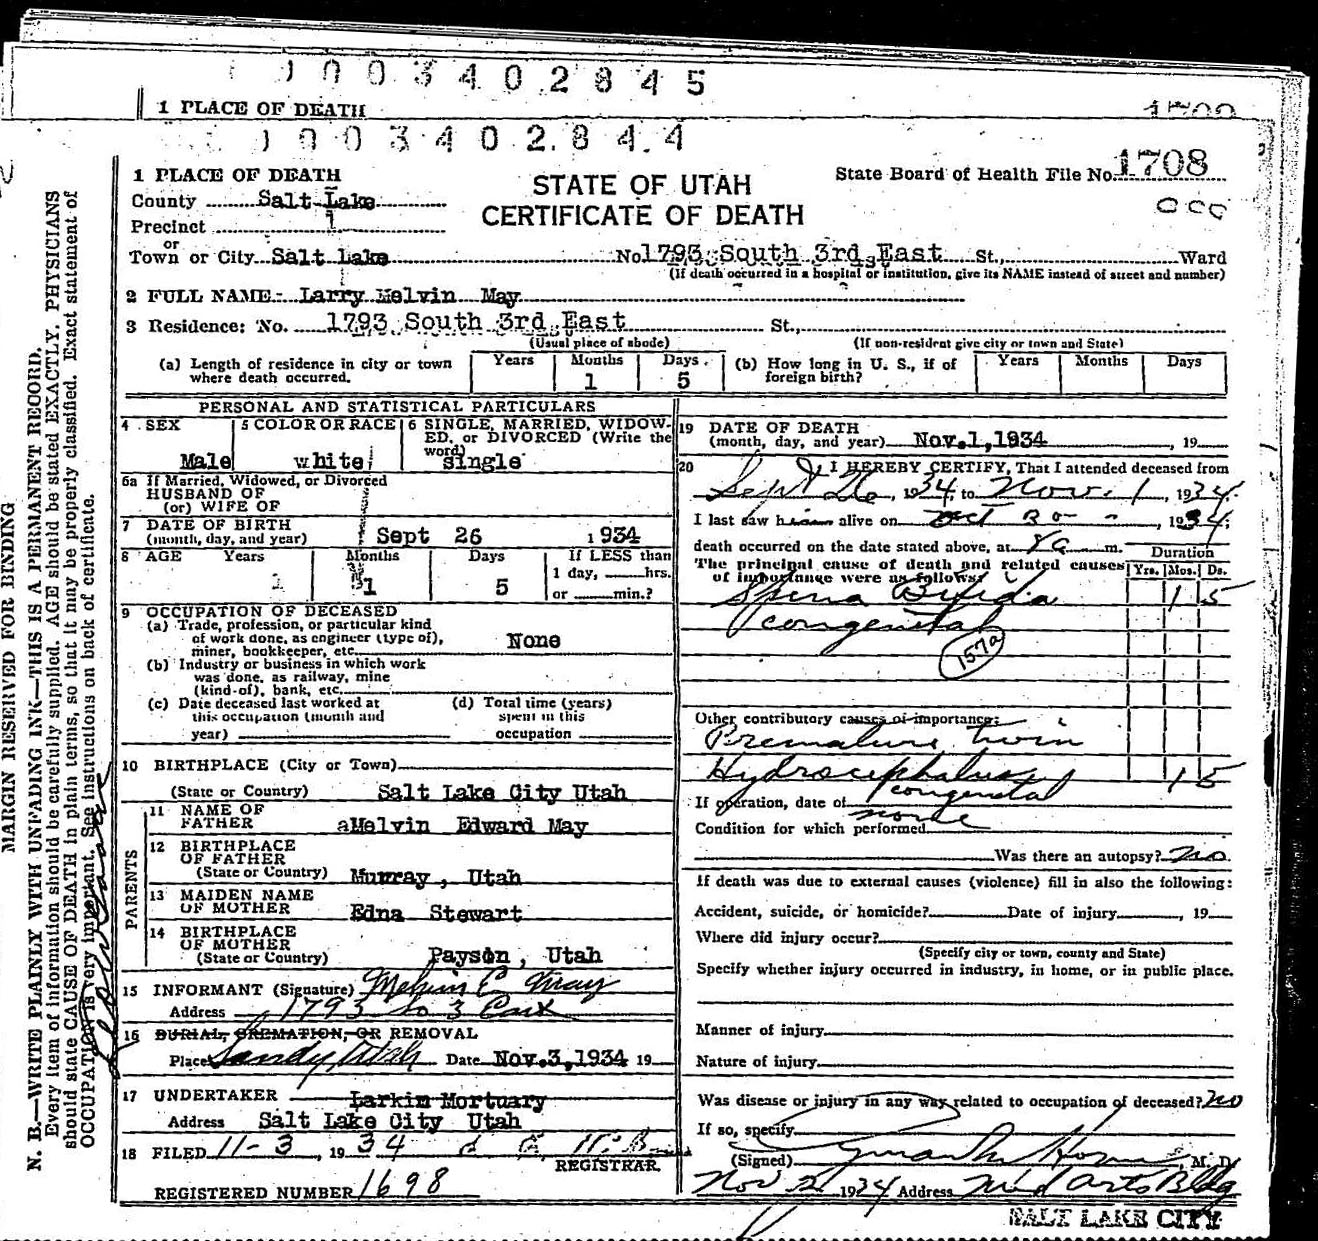 0 0 0 3 4 0 2 8 4 5
1 PLACE OF DEATH
0 0 0 3 4 0 2 8 4 4
1 PLACE OF DEATH
State Board of Health File No. 1708
County Salt Lake
STATE OF UTAH
CERTIFICATE OF DEATH
Precinct 1
or
Town or City Salt Lake No. 1793 South 3rd East St., Ward
(If death occurred in a hospital or institution, give its NAME instead of street and number)
2 FULL NAME Larry Melvin May
3 Residence: No. 1793 South 3rd East St.,
(Usual place of abode) (If non-resident give city or town and State)
(a) Length of residence in city or town where death occurred. Years Months 1 Days 5
(b) How long in U. S., if of foreign birth? Years Months Days
PERSONAL AND STATISTICAL PARTICULARS
4 SEX Male
5 COLOR OR RACE white
6 SINGLE, MARRIED, WIDOWED, or DIVORCED (Write the word) single
6a If Married, Widowed, or Divorced
HUSBAND OF
(or) WIFE OF
7 DATE OF BIRTH
(month, day, and year) Sept 26 1934
8 AGE Years Months 1 Days 5
If LESS than
1 day, hrs.
or min.?
9 OCCUPATION OF DECEASED
(a) Trade, profession, or particular kind
of work done, as engineer (type of),
miner, bookkeeper, etc. None
(b) Industry or business in which work
was done, as railway, mine
(kind-of), bank, etc.
(c) Date deceased last worked at
this occupation (month and
year)
(d) Total time (years)
spent in this
occupation
10 BIRTHPLACE (City or Town)
(State or Country) Salt Lake City Utah
PARENTS
11 NAME OF
FATHER aMelvin Edward May
12 BIRTHPLACE
OF FATHER
(State or Country) Murray, Utah
13 MAIDEN NAME
OF MOTHER Edna Stewart
14 BIRTHPLACE
OF MOTHER
(State or Country) Payson, Utah
15 INFORMANT (Signature) Melvin E May
Address 1793 So 3 East
16 BURIAL, CREMATION, OR REMOVAL
Place Sandy, Utah Date Nov.3,1934 19
17 UNDERTAKER Larkin Mortuary
Address Salt Lake City Utah
18 FILED 11-3, 1934
REGISTRAR
REGISTERED NUMBER 1698
19 DATE OF DEATH
(month, day, and year) Nov.1,1934, 19
20 I HEREBY CERTIFY, That I attended deceased from
Sept 26, 1934, to Nov. 1, 1934.
I last saw him alive on Oct 30, 1934;
death occurred on the date stated above, at 8 a m.
The principal cause of death and related causes
of importance were as follows:
Duration
Yrs. Mos. Ds.
Spina Bifida 1 5
congenital
157a
Other contributory causes of importance:
Premature twin
Hydrocephalus 1 5
congenital
If operation, date of none
Condition for which performed
Was there an autopsy? no
If death was due to external causes (violence) fill in also the following:
Accident, suicide, or homicide? Date of injury, 19
Where did injury occur?
(Specify city or town, county and State)
Specify whether injury occurred in industry, in home, or in public place.
Manner of injury
Nature of injury
Was disease or injury in any way related to occupation of deceased? no
If so, specify
(Signed) M. D.
Nov 2 1934 Address Med Arts Bldg
SALT LAKE CITY
MARGIN RESERVED FOR BINDING
N. B.—WRITE PLAINLY WITH UNFADING INK—THIS IS A PERMANENT RECORD.
Every item of information should be carefully supplied. AGE should be stated EXACTLY. PHYSICIANS
should state CAUSE OF DEATH in plain terms, so that it may be properly classified. Exact statement of
OCCUPATION is very important. See instructions on back of certificate.